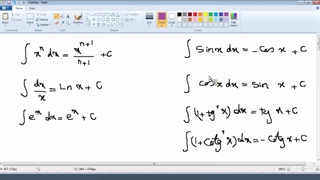 ∫ xⁿ dx = xⁿ⁺¹/n+1 + C
∫ dx/x = Ln x + C
∫ eˣ dx = eˣ + C
∫ Sin x dx = -Cos x + C
∫ Cos x dx = Sin x + C
∫ (1+tg² x) dx = tg x + C
∫ (1+Cotg² x) dx = -Cotg x + C